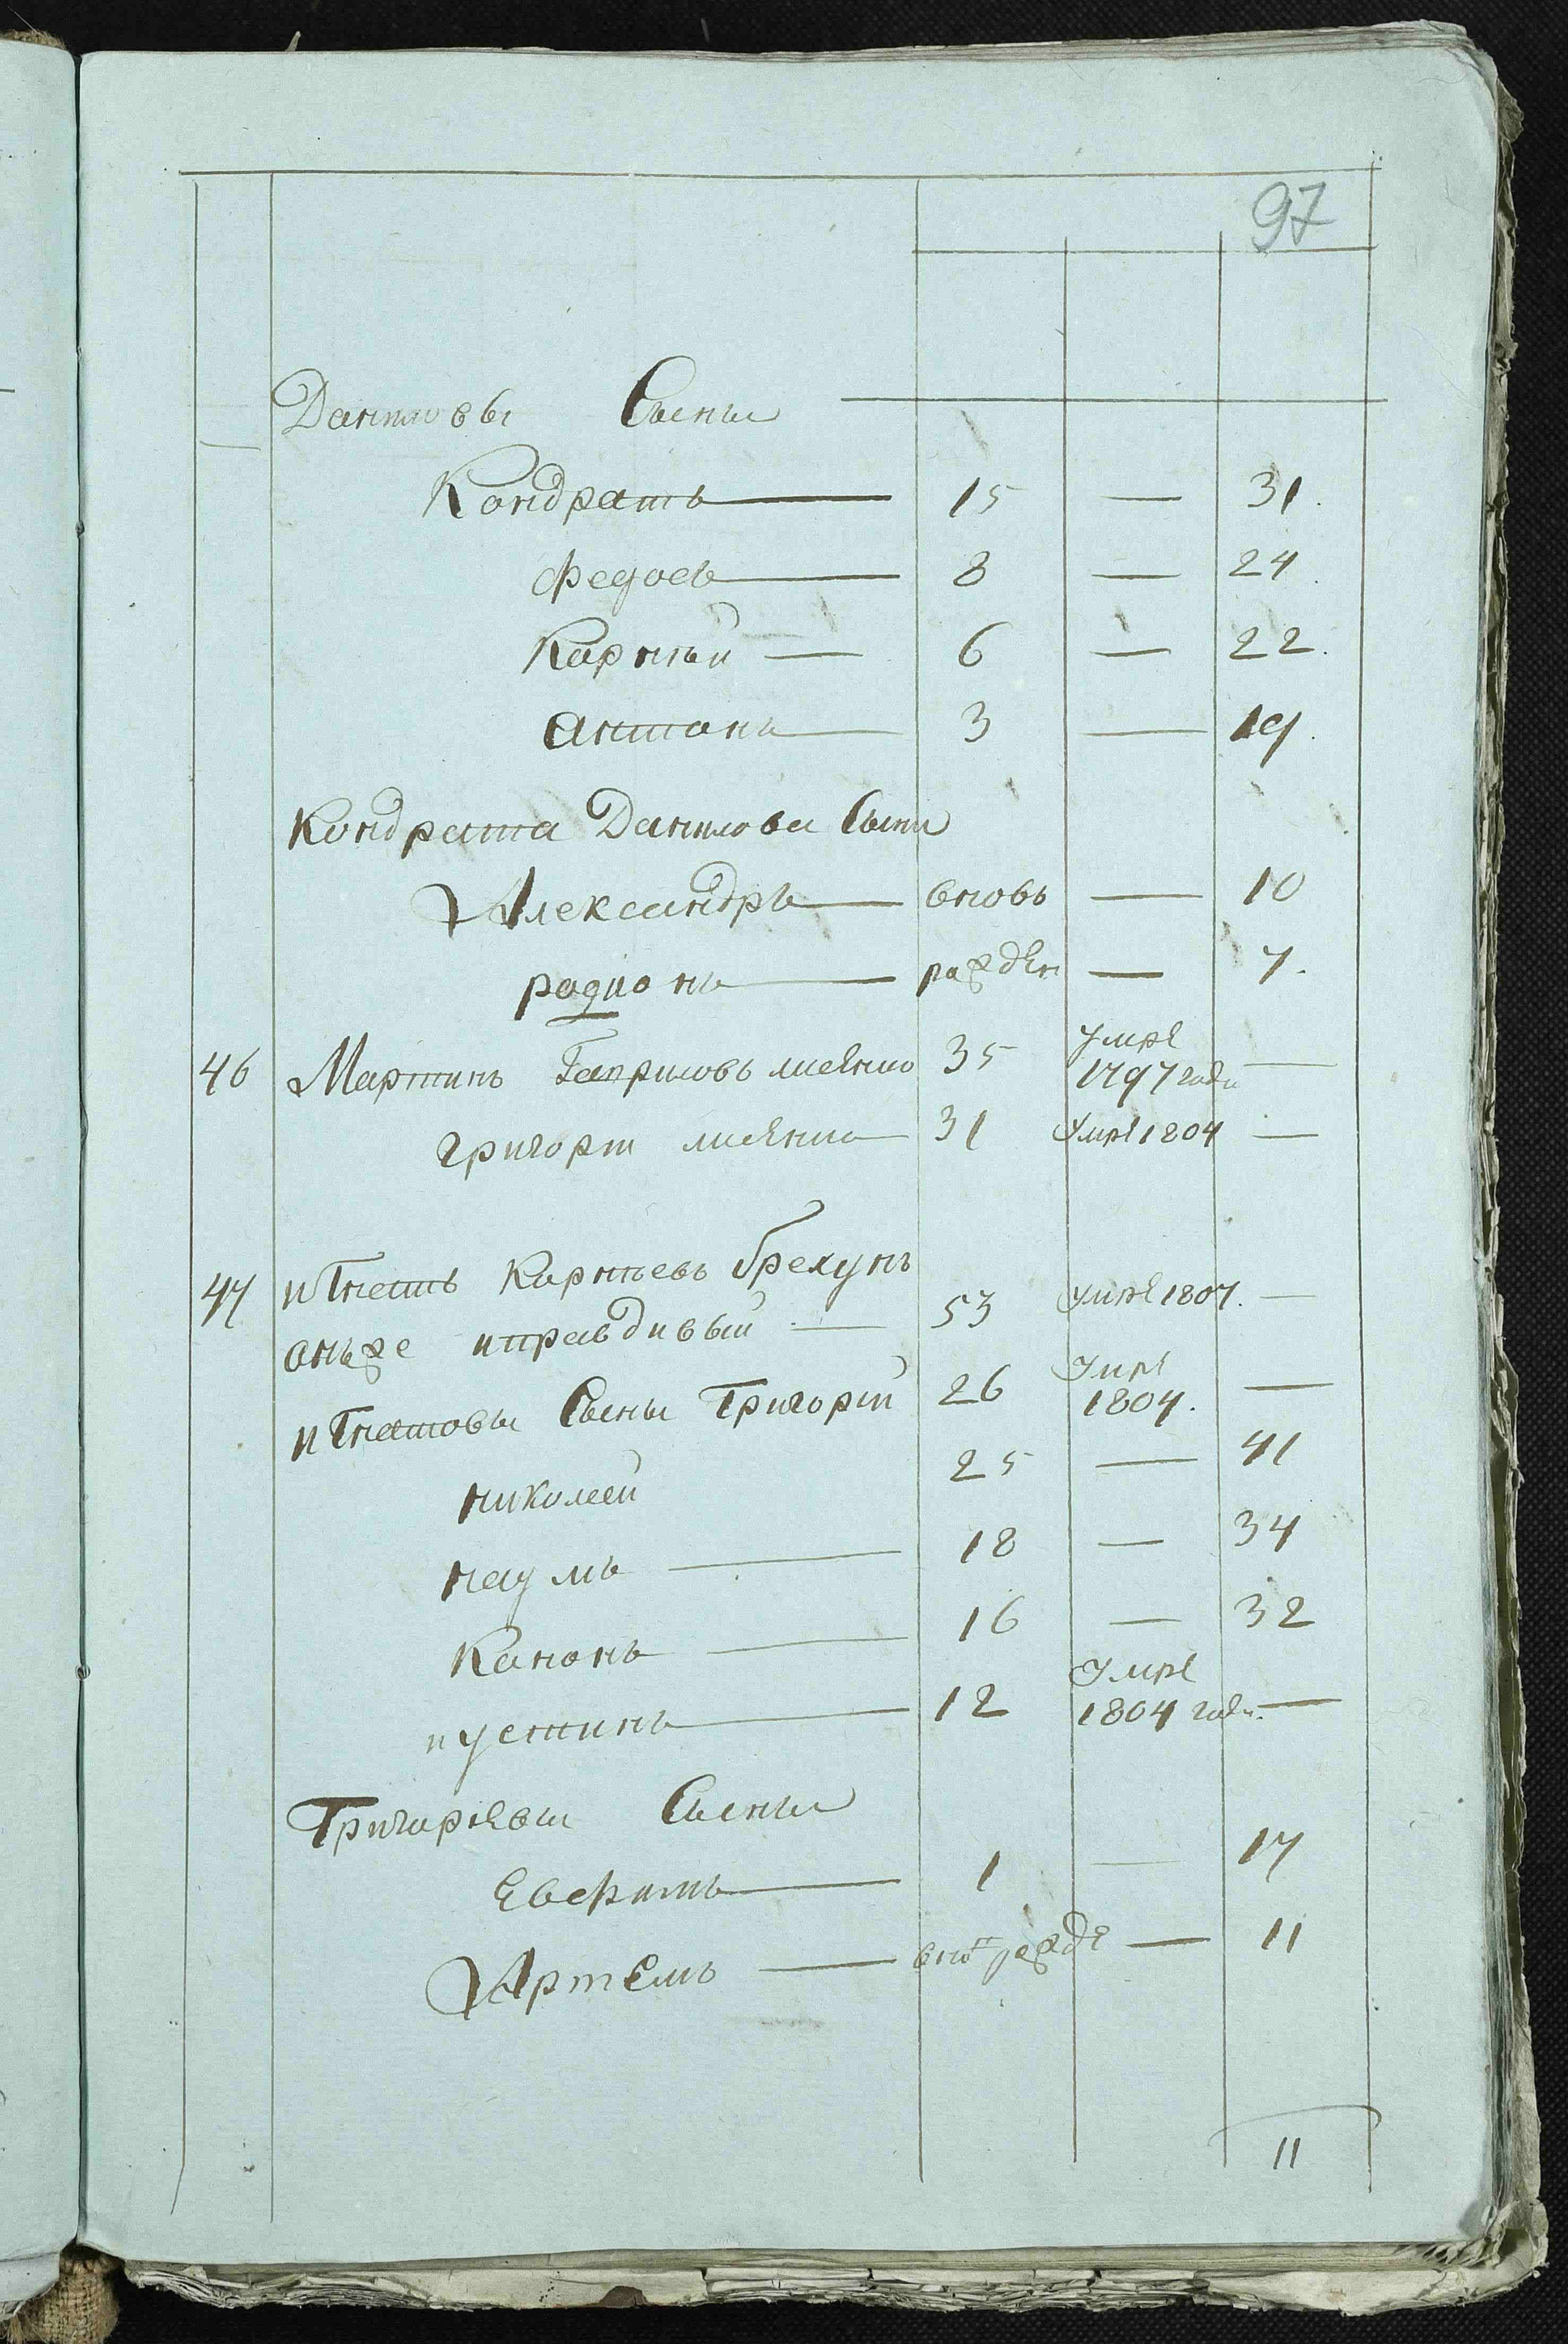 97
Даниловы Сыны
Кондратъ 15 — 31.
Федосъ 8 — 24.
Карнѣй — 6 — 22.
Антонъ 3 — 19.
Кондрата Данилова Сыны
Александръ вновь — 10
радионъ рожден — 7.
46 Мартинъ Гавриловъ 35 умре 1797 года —
григори 31 умре 1804 —
47 игнатъ Карнѣевъ брехунъ
онъже иправдивый — 53 умре 1807. —
игнатовы Сыны Григорiй 26 умре 1804. —
николай 25 — 41
наумъ — 18 — 34
Канонъ — 16 — 32
иустинъ 12 умре 1804 года. —
Григоревы Сыны
Евфимъ 1 — 17
Артемъ — вно рожде — 11
11